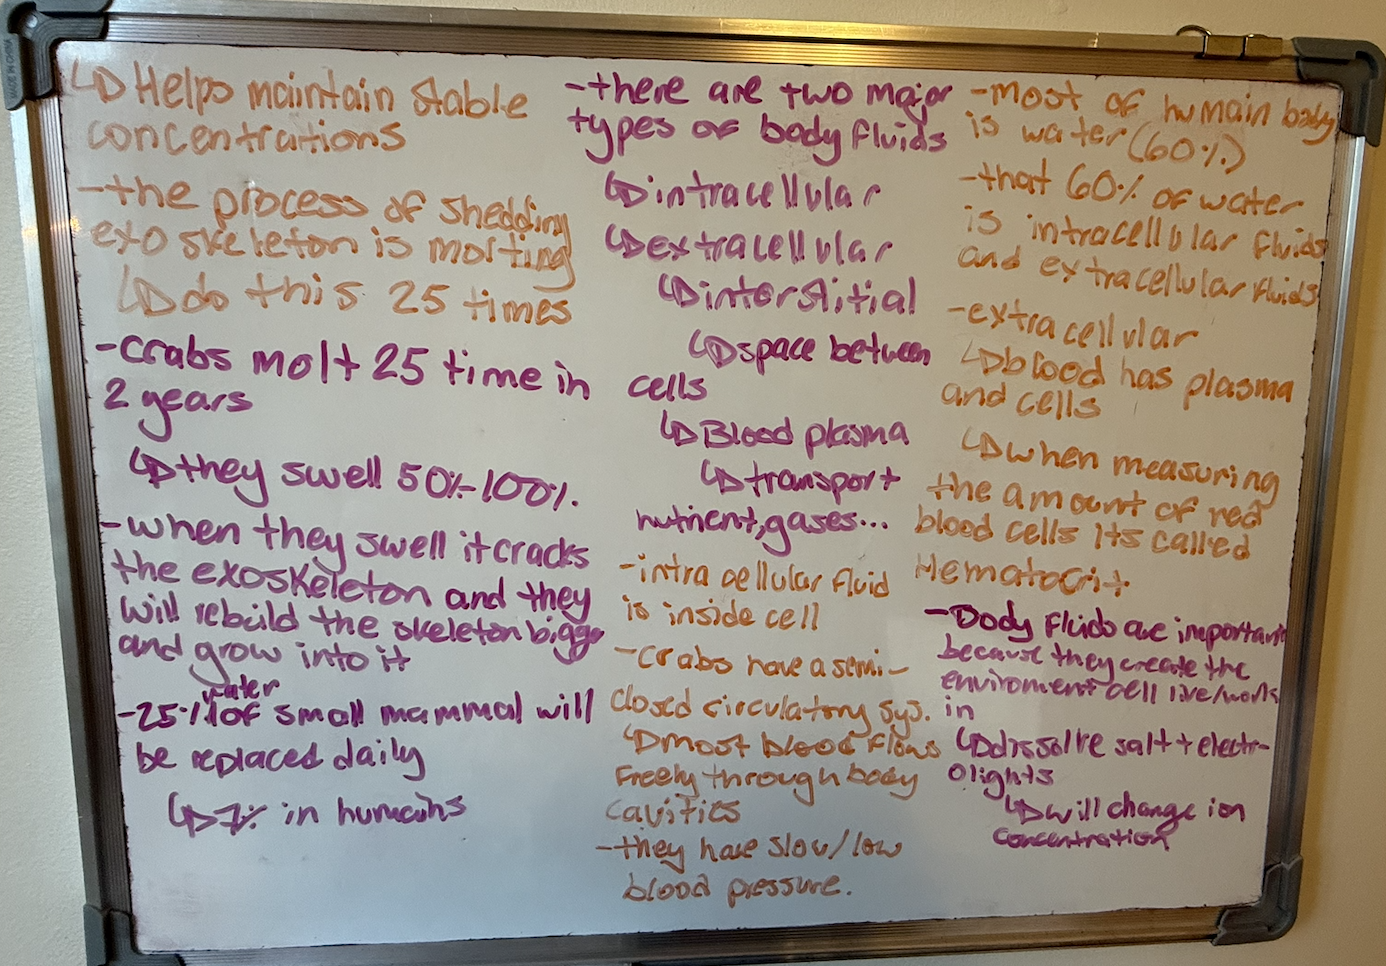 ↳ Helps maintain stable
concentrations
-the process of shedding
exoskeleton is molting
↳ do this 25 times
-crabs molt 25 time in
2 years
↳ they swell 50%-100%.
-when they swell it cracks
the exoskeleton and they
will rebuild the skeleton bigger
and grow into it
water
-25% of small mammal will
be replaced daily
↳ 7% in humains
-there are two major
types of body fluids
↳ intracellular
↳ extracellular
↳ interstitial
↳ space between
cells
↳ Blood plasma
↳ transport
nutrient, gases...
-intra cellular fluid
is inside cell
-crabs have a semi-
closed circulatory sys.
↳ most blood flows
freely through body
cavities
-they have slow/low
blood pressure.
-most of humain body
is water (60%)
-that 60% of water
is intracellular fluids
and extracellular fluids
-extracellular
↳ blood has plasma
and cells
↳ when measuring
the amount of red
blood cells its called
Hematocrit
-Body fluids are important
because they create the
enviroment cell live/works
in
↳ dissolve salt + electr-
olights
↳ will change ion
concentration